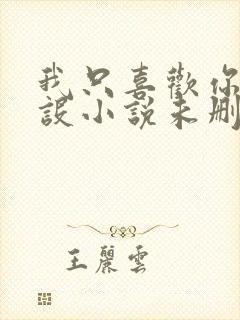 我只喜歡你
設小說未刪
王麗雲